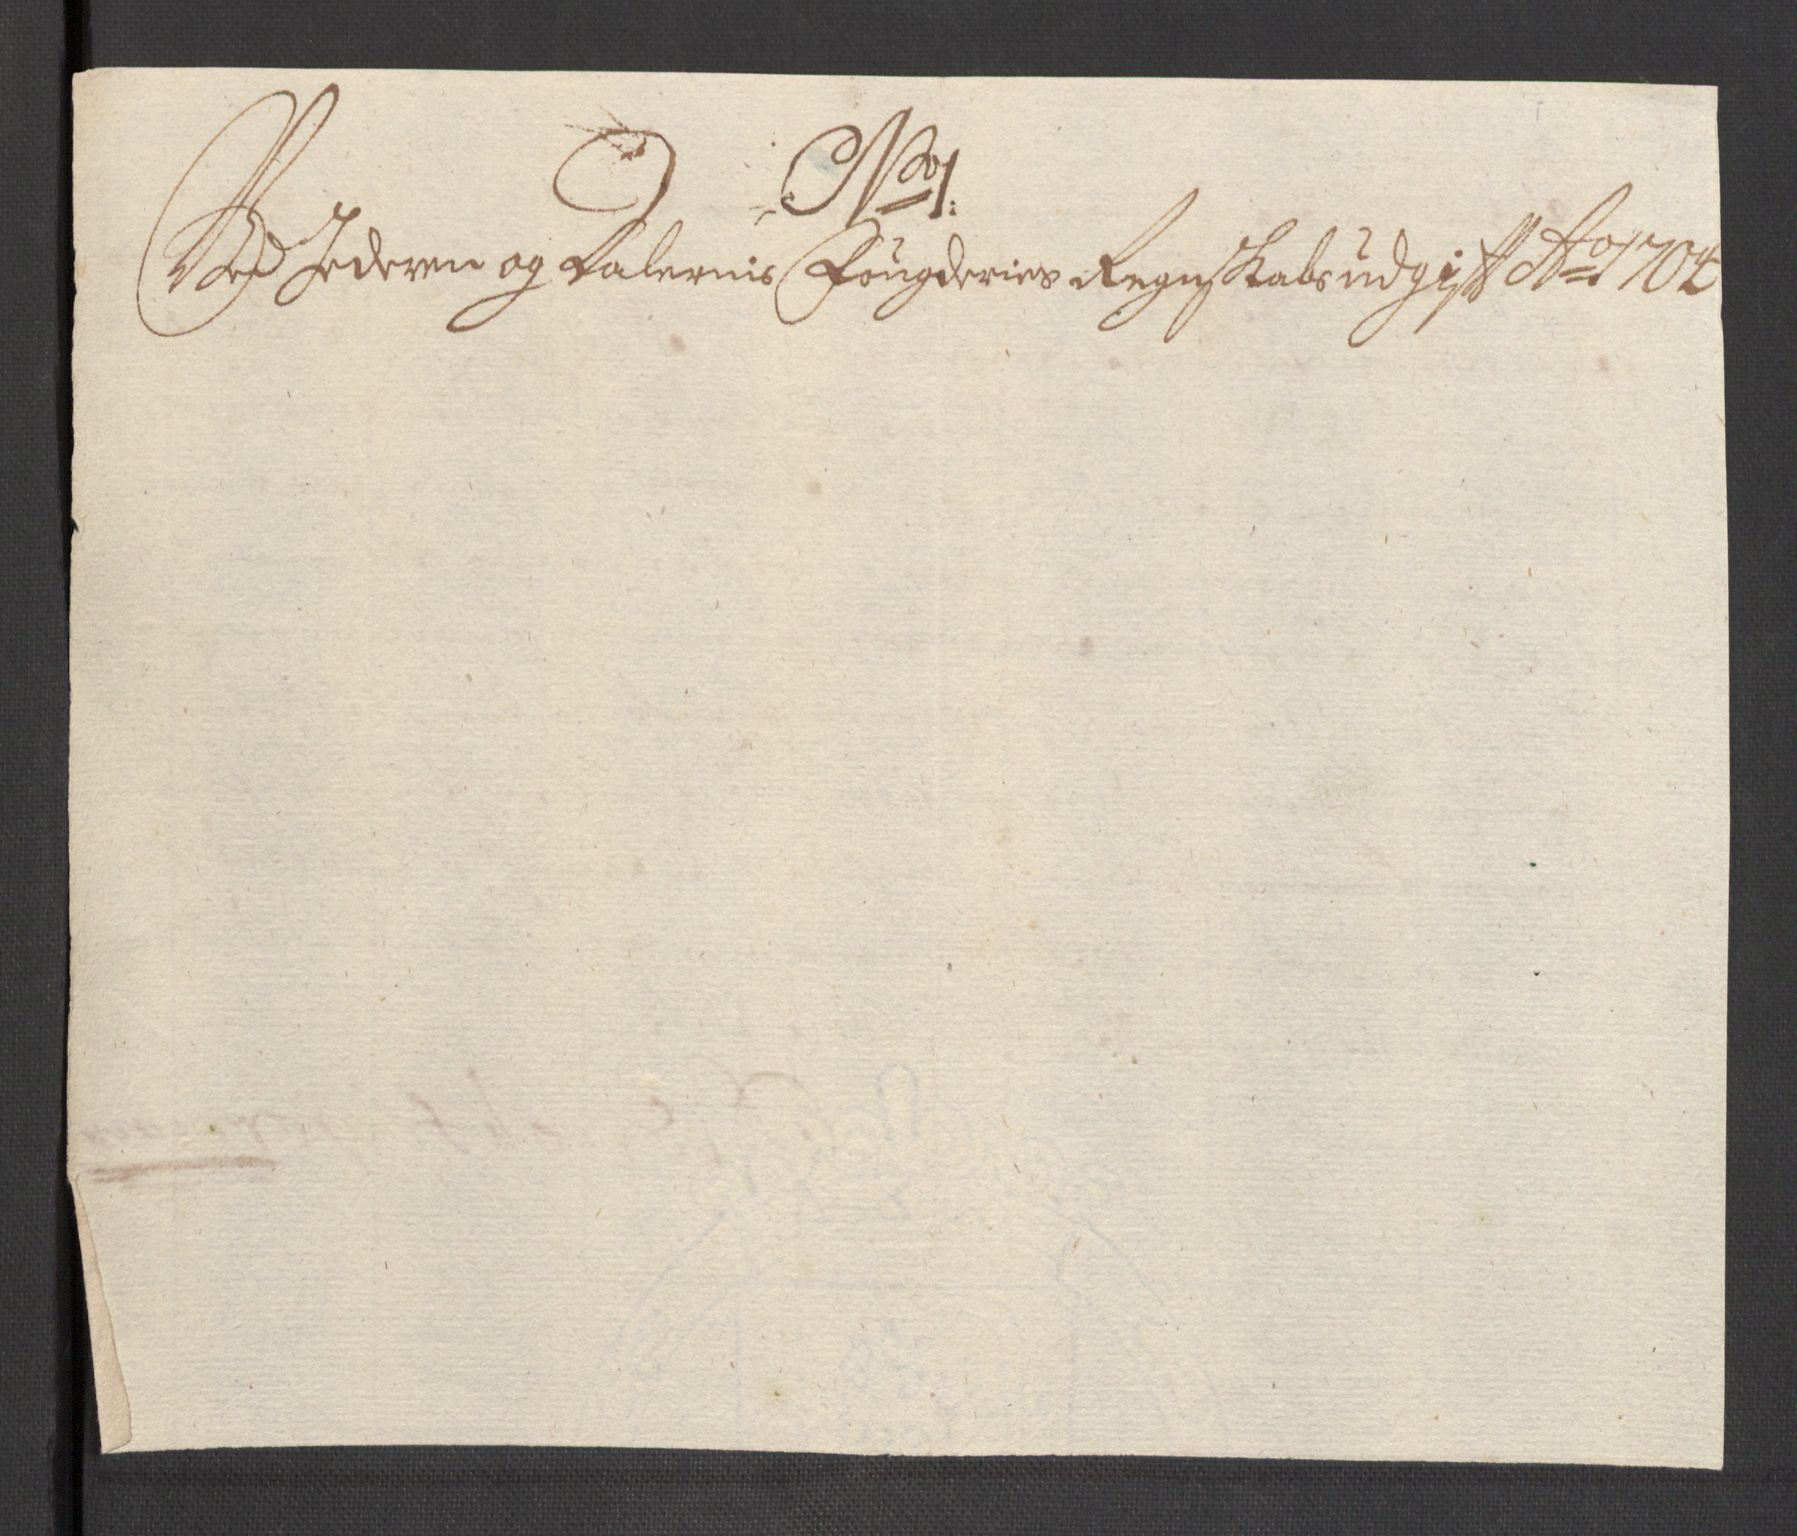 No 1.
Ved Jederen og Dalernis Fougderies Regnskabs udgift Ao 1704